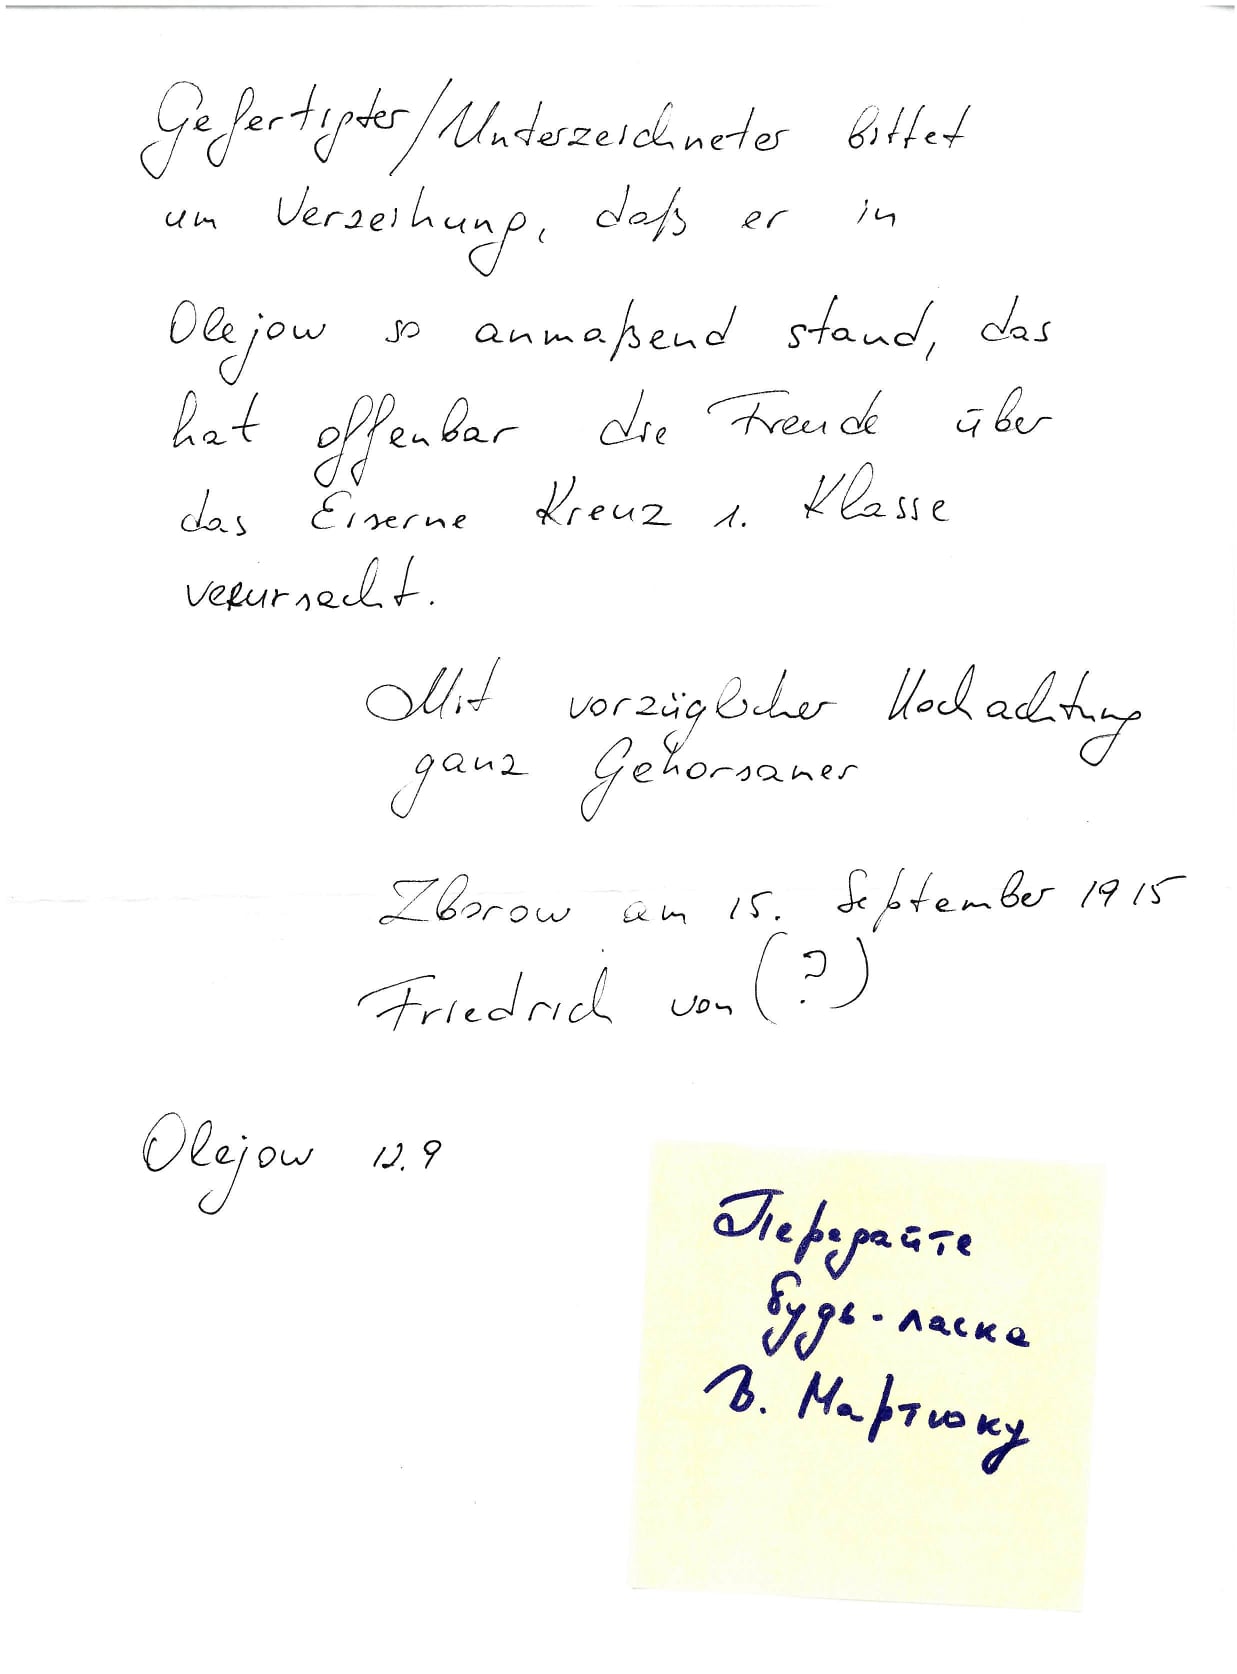 Gefertigter/Unterzeichneter bittet
um Verzeihung, daß er in
Olejow so anmaßend stand, das
hat offenbar die Freude über
das Eiserne Kreuz 1. Klasse
verursacht.
Mit vorzüglicher Hochachtung
ganz Gehorsamer
Zborow am 15. September 1915
Friedrich von (?)
Olejow 12.9
Передайте
будь-ласка
В. Мартюку